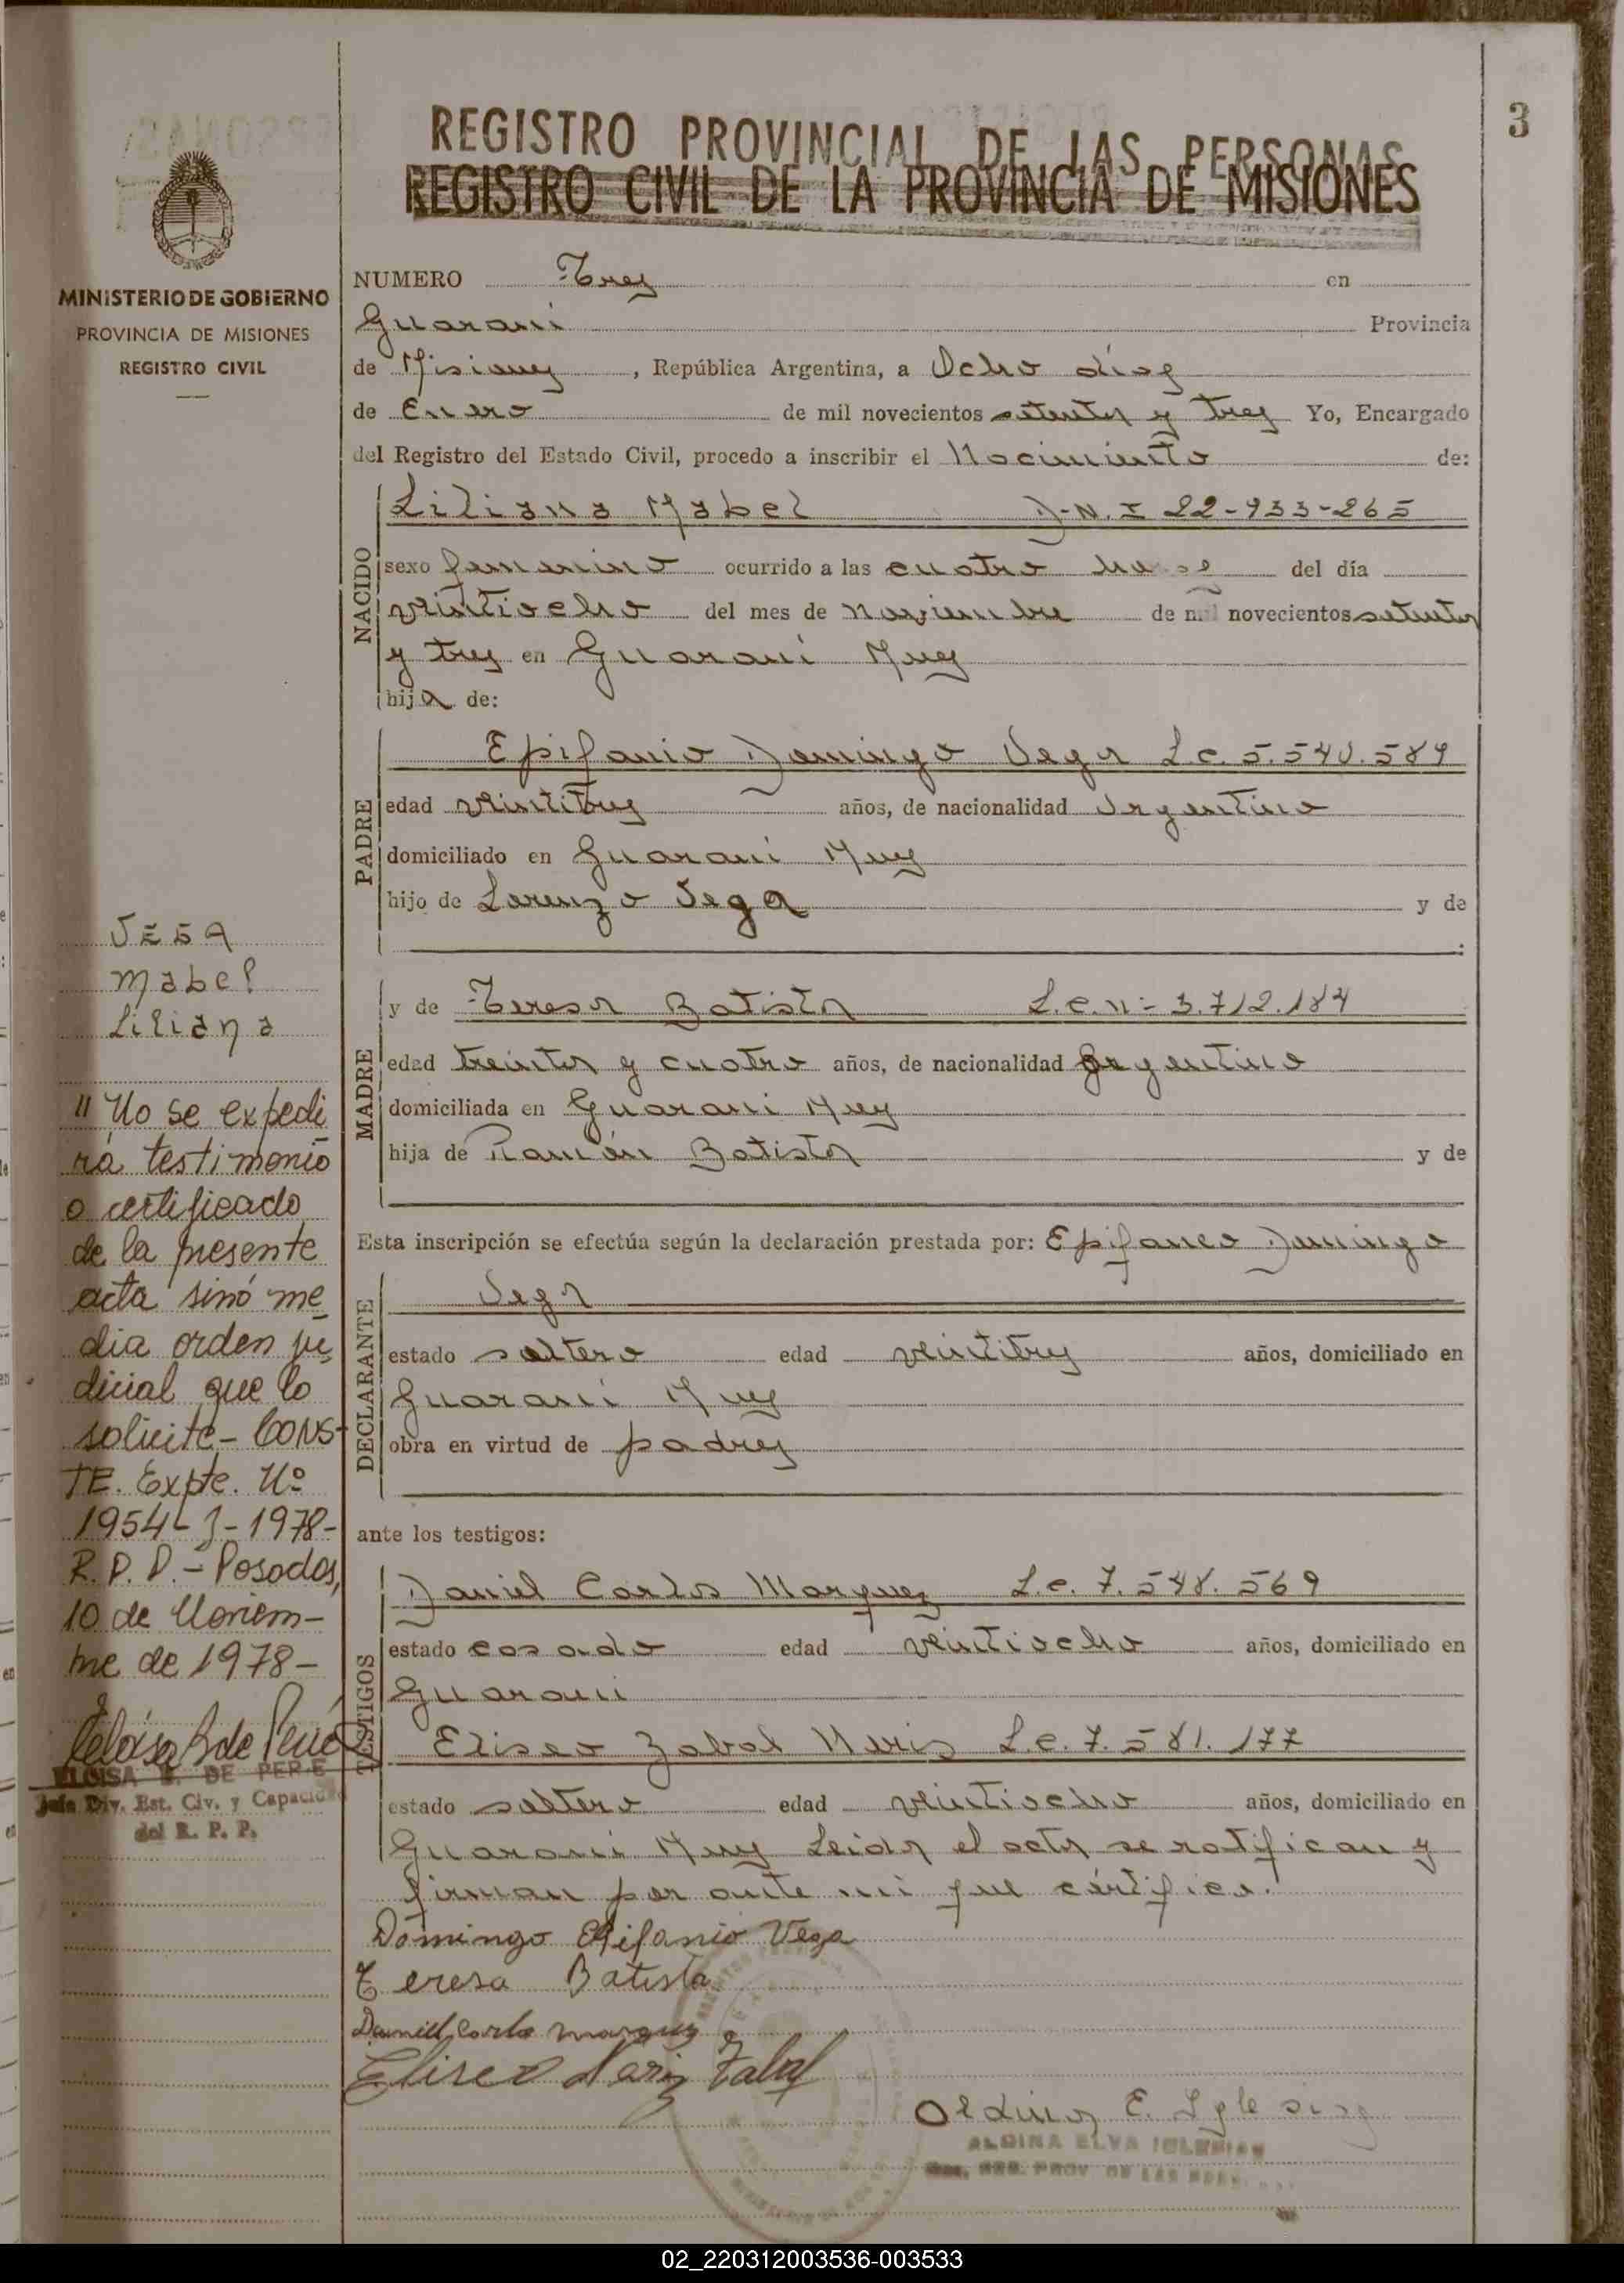 3
REGISTRO PROVINCIAL DE LAS PERSONAS
REGISTRO CIVIL DE LA PROVINCIA DE MISIONES
MINISTERIO DE GOBIERNO
PROVINCIA DE MISIONES
REGISTRO CIVIL
NUMERO Tres en
Guaraní Provincia
de Misiones, República Argentina, a Ocho días
de Enero de mil novecientos setenta y tres Yo, Encargado
del Registro del Estado Civil, procedo a inscribir el Nacimiento de:
NACIDO
Liliana Mabel D.N.I 22-933-265
sexo femenino ocurrido a las cuatro del día
veintiocho del mes de Noviembre de mil novecientos setenta
y tres en Guaraní Mnes
hija de:
PADRE
Epifanio Domingo Vega L.e. 5.540.589
edad veintitres años, de nacionalidad Argentino
domiciliado en Guaraní Mnes
hijo de Lorenzo Vega y de
MADRE
y de Teresa Batista L.C.N= 3.712.184
edad treinta y cuatro años, de nacionalidad Argentino
domiciliada en Guaraní Mnes
hija de Ramón Batista y de
Esta inscripción se efectúa según la declaración prestada por: Epifaneo Domingo
DECLARANTE
Vega
estado soltero edad veintitres años, domiciliado en
Guaraní Mnes
obra en virtud de padres
ante los testigos:
TESTIGOS
Daniel Carlos Marquez L.e. 7.548.569
estado casado edad veintiocho años, domiciliado en
Guaraní
Eliseo Zabal Neris L.e. 7.581.177
estado soltero edad veintiocho años, domiciliado en
Guaraní Mnes Leida el acta se ratifican y
firman por ante mi que certifico.
Domingo Epifanio Vega
Teresa Batista
Daniel Carlos Marquez
Eliseo Neriz Zabal
Aldina E. Iglesias
ALDINA ELVA IGLESIAS
VEGA
Mabel
Liliana
"No se expedi
rá testimonio
o certificado
de la presente
acta sinó me
dia orden ju
dicial que lo
solicite - CONS-
TE. Expte. Nº
1954-J-1978-
R.P.P. - Posadas,
10 de Noviem-
bre de 1978-
ELOISA B. DE PERIE
Jefa Div. Est. Civ. y Capacidad
del R. P. P.
02_220312003536-003533